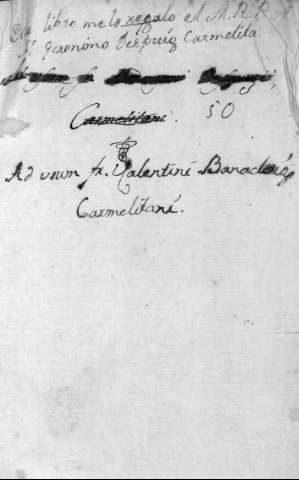 Este libro me lo regalo el M. R. P.
Geronimo Despuig Carmelita.
Carmelitani. 50
Ad usum fr. Valentini
Carmelitani.